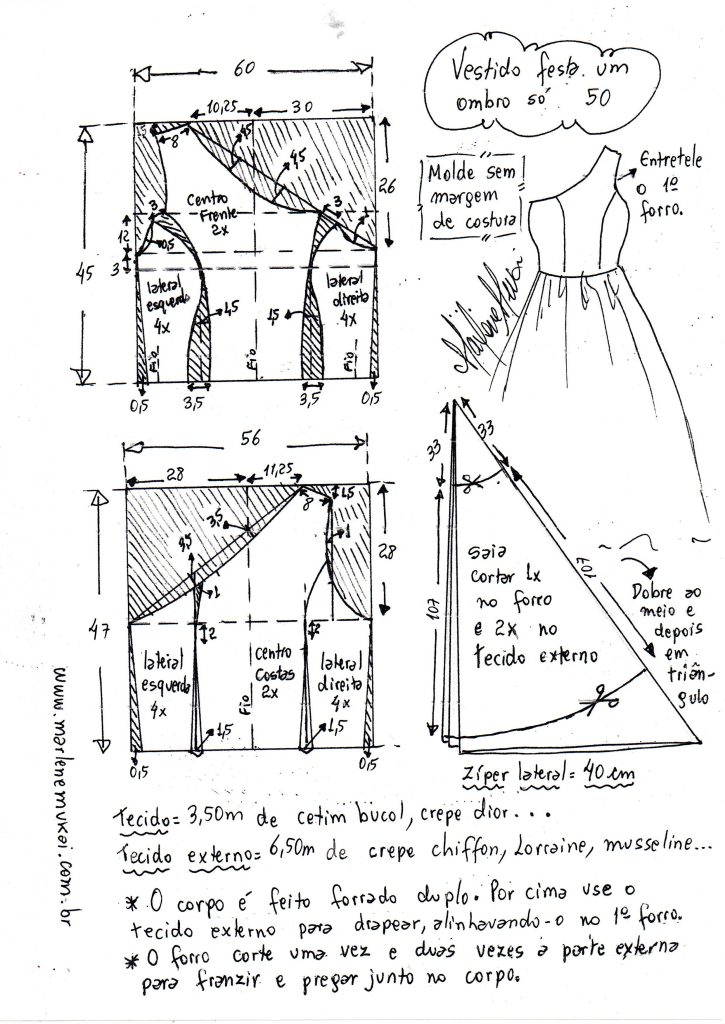 Vestido festa um
ombro só 50
60
10,25
30
1,5
8
4,5
4,5
26
Centro
Frente
2x
3
3
1
12
0,5
3
45
lateral
esquerda
4x
lateral
direita
4x
1,5
1,5
Fio
Fio
Fio
0,5
3,5
3,5
0,5
Molde sem
margem
de costura
Entretele
o 1º
forro.
56
28
11,25
8
1,5
3,5
3,5
1
1
28
47
2
2
lateral
esquerda
4x
centro
Costas
2x
lateral
direita
4x
Fio
1,5
1,5
0,5
0,5
33
33
107
107
Saia
cortar 1x
no forro
e 2x no
tecido externo
Dobre ao
meio e
depois
em
triân-
gulo
Zíper lateral = 40 cm
www.marlenemukai.com.br
Tecido = 3,50m de cetim bucol, crepe dior...
Tecido externo = 6,50m de crepe chiffon, Lorraine, musseline...
* O corpo é feito forrado duplo. Por cima use o
tecido externo para drapear, alinhavando-o no 1º forro.
* O forro corte uma vez e duas vezes a parte externa
para franzir e pregar junto no corpo.